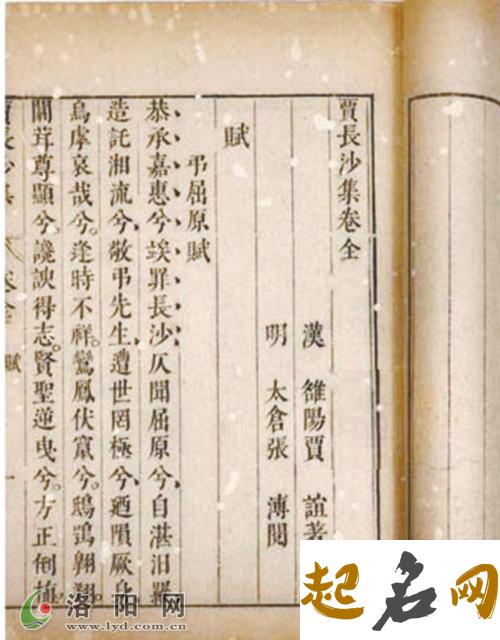 賈長沙集卷全
漢 雒陽賈 誼著
明 太倉張 溥閱
賦
弔屈原賦
恭承嘉惠兮、竢罪長沙、仄聞屈原兮、自湛汨羅
造託湘流兮、敬弔先生、遭世罔極兮、廼隕厥身
烏虖哀哉兮。逢時不祥。鸞鳳伏竄兮。鴟鴞翱翔。
闒茸尊顯兮。讒諛得志。賢聖逆曳兮。方正倒植
賈長沙集 卷全 賦 一
洛阳网
www.lyd.com.cn
起名网